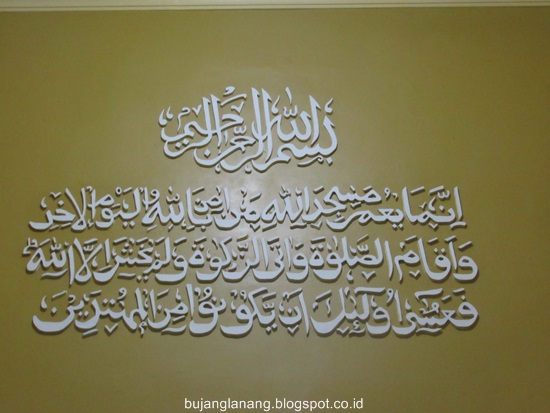 بسم الله الرحمن الرحيم
إنما يعمر مسجد الله من امن بالله واليوم الاخر
واقام الصلوة واتى الزكوة ولم يخش الا الله
فعسى اولئك ان يكونوا من المهتدين
bujanglanang.blogspot.co.id